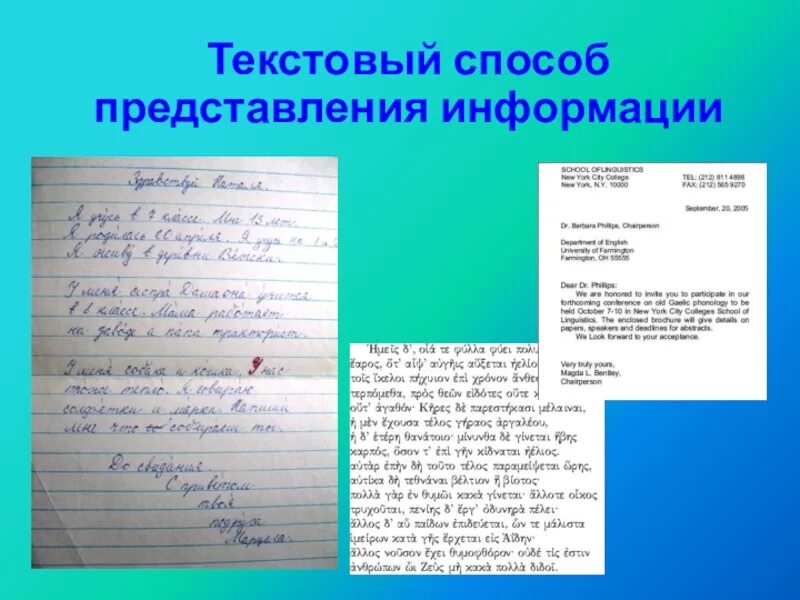 Текстовый способ
представления информации
Здравствуй Наталя.
Я учусь в 7 классе. Мне 13 лет.
Я родилась 20 апреля. Я учусь на
Я живу в деревни
У меня сестра Даша она учится
в 8 классе. Мама работает
на заводе а папа тракторист.
У меня собака и кошка. У нас
тоже тепло. Я собираю
салфетки и марки. Напиши
мне что собираеш ты.
До свидания.
С приветом
твоя
подруга
Марцела.
SCHOOL OF LINGUISTICS
New York City College TEL: (212) 811 4898
New York, N.Y. 10000 FAX: (212) 565 9270
September, 20, 2005
Dr. Barbara Phillips, Chairperson
Department of English
University of Farmington
Farmington, OH 55555
Dear Dr. Phillips:
We are honored to invite you to participate in our
forthcoming conference on old Gaelic phonology to be
held October 7-10 in New York City Colleges School of
Linguistics. The enclosed brochure will give details on
papers, speakers and deadlines for abstracts.
We Look forward to your acceptance.
Very truly yours,
Magda L. Bentley,
Chairperson
Ἡμεῖς δ', οἷά τε φύλλα φύει πολυ
ἔαρος, ὅτ' αἶψ' αὐγῇς αὔξεται ἠελίο
τοῖς ἴκελοι πήχυιον ἐπὶ χρόνον ἄνθεσ
τερπόμεθα, πρὸς θεῶν εἰδότες οὔτε κ
οὔτ' ἀγαθόν· Κῆρες δὲ παρεστήκασι μέλαιναι,
ἡ μὲν ἔχουσα τέλος γήραος ἀργαλέου,
ἡ δ' ἑτέρη θανάτοιο· μίνυνθα δὲ γίνεται ἥβης
καρπός, ὅσον τ' ἐπὶ γῆν κίδναται ἠέλιος,
αὐτὰρ ἐπὴν δὴ τοῦτο τέλος παραμείψεται ὥρης,
αὐτίκα δὴ τεθνάναι βέλτιον ἢ βίοτος·
πολλὰ γὰρ ἐν θυμῶι κακὰ γίνεται· ἄλλοτε οἶκος
τρυχοῦται, πενίης δ' ἔργ' ὀδυνηρὰ πέλει·
ἄλλος δ' αὖ παίδων ἐπιδεύεται, ὧν τε μάλιστα
ἱμείρων κατὰ γῆς ἔρχεται εἰς Ἀΐδην·
ἄλλος νοῦσον ἔχει θυμοφθόρον· οὐδέ τίς ἐστιν
ἀνθρώπων ὧι Ζεὺς μὴ κακὰ πολλὰ διδοῖ.